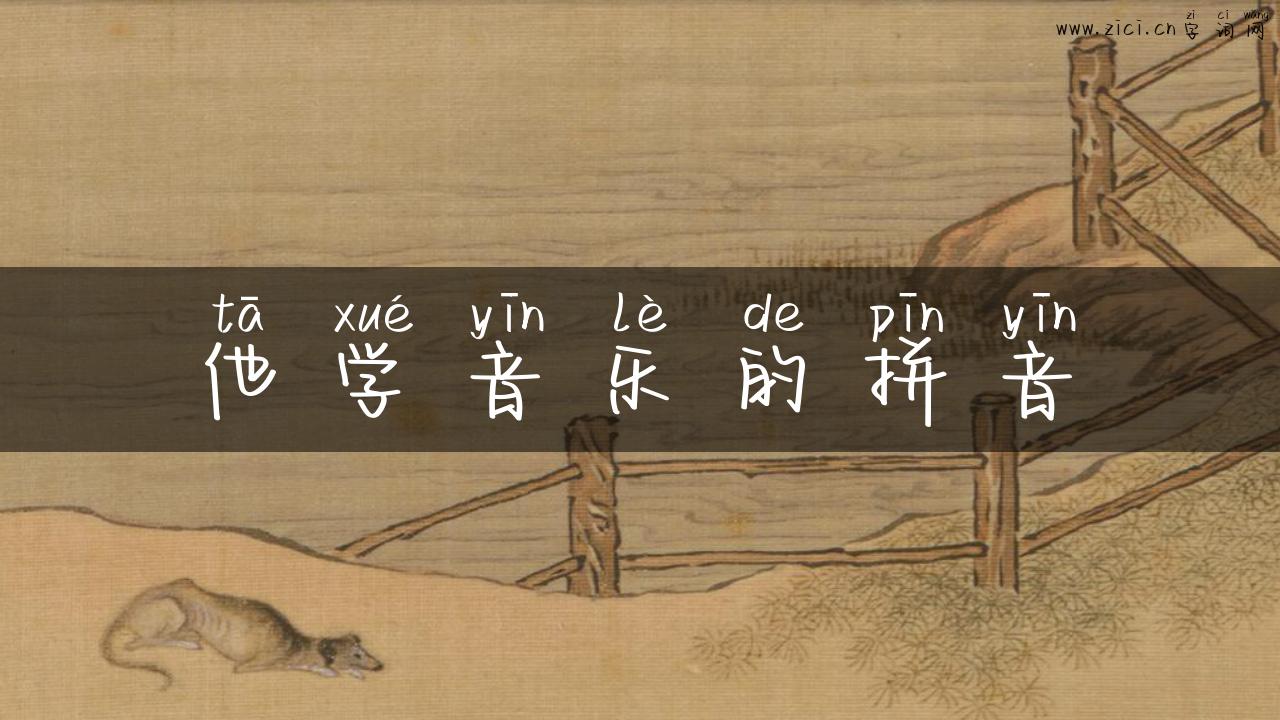 zì cí wǎng
www.zici.cn 字词网
tā xué yīn lè de pīn yīn
他学音乐的拼音